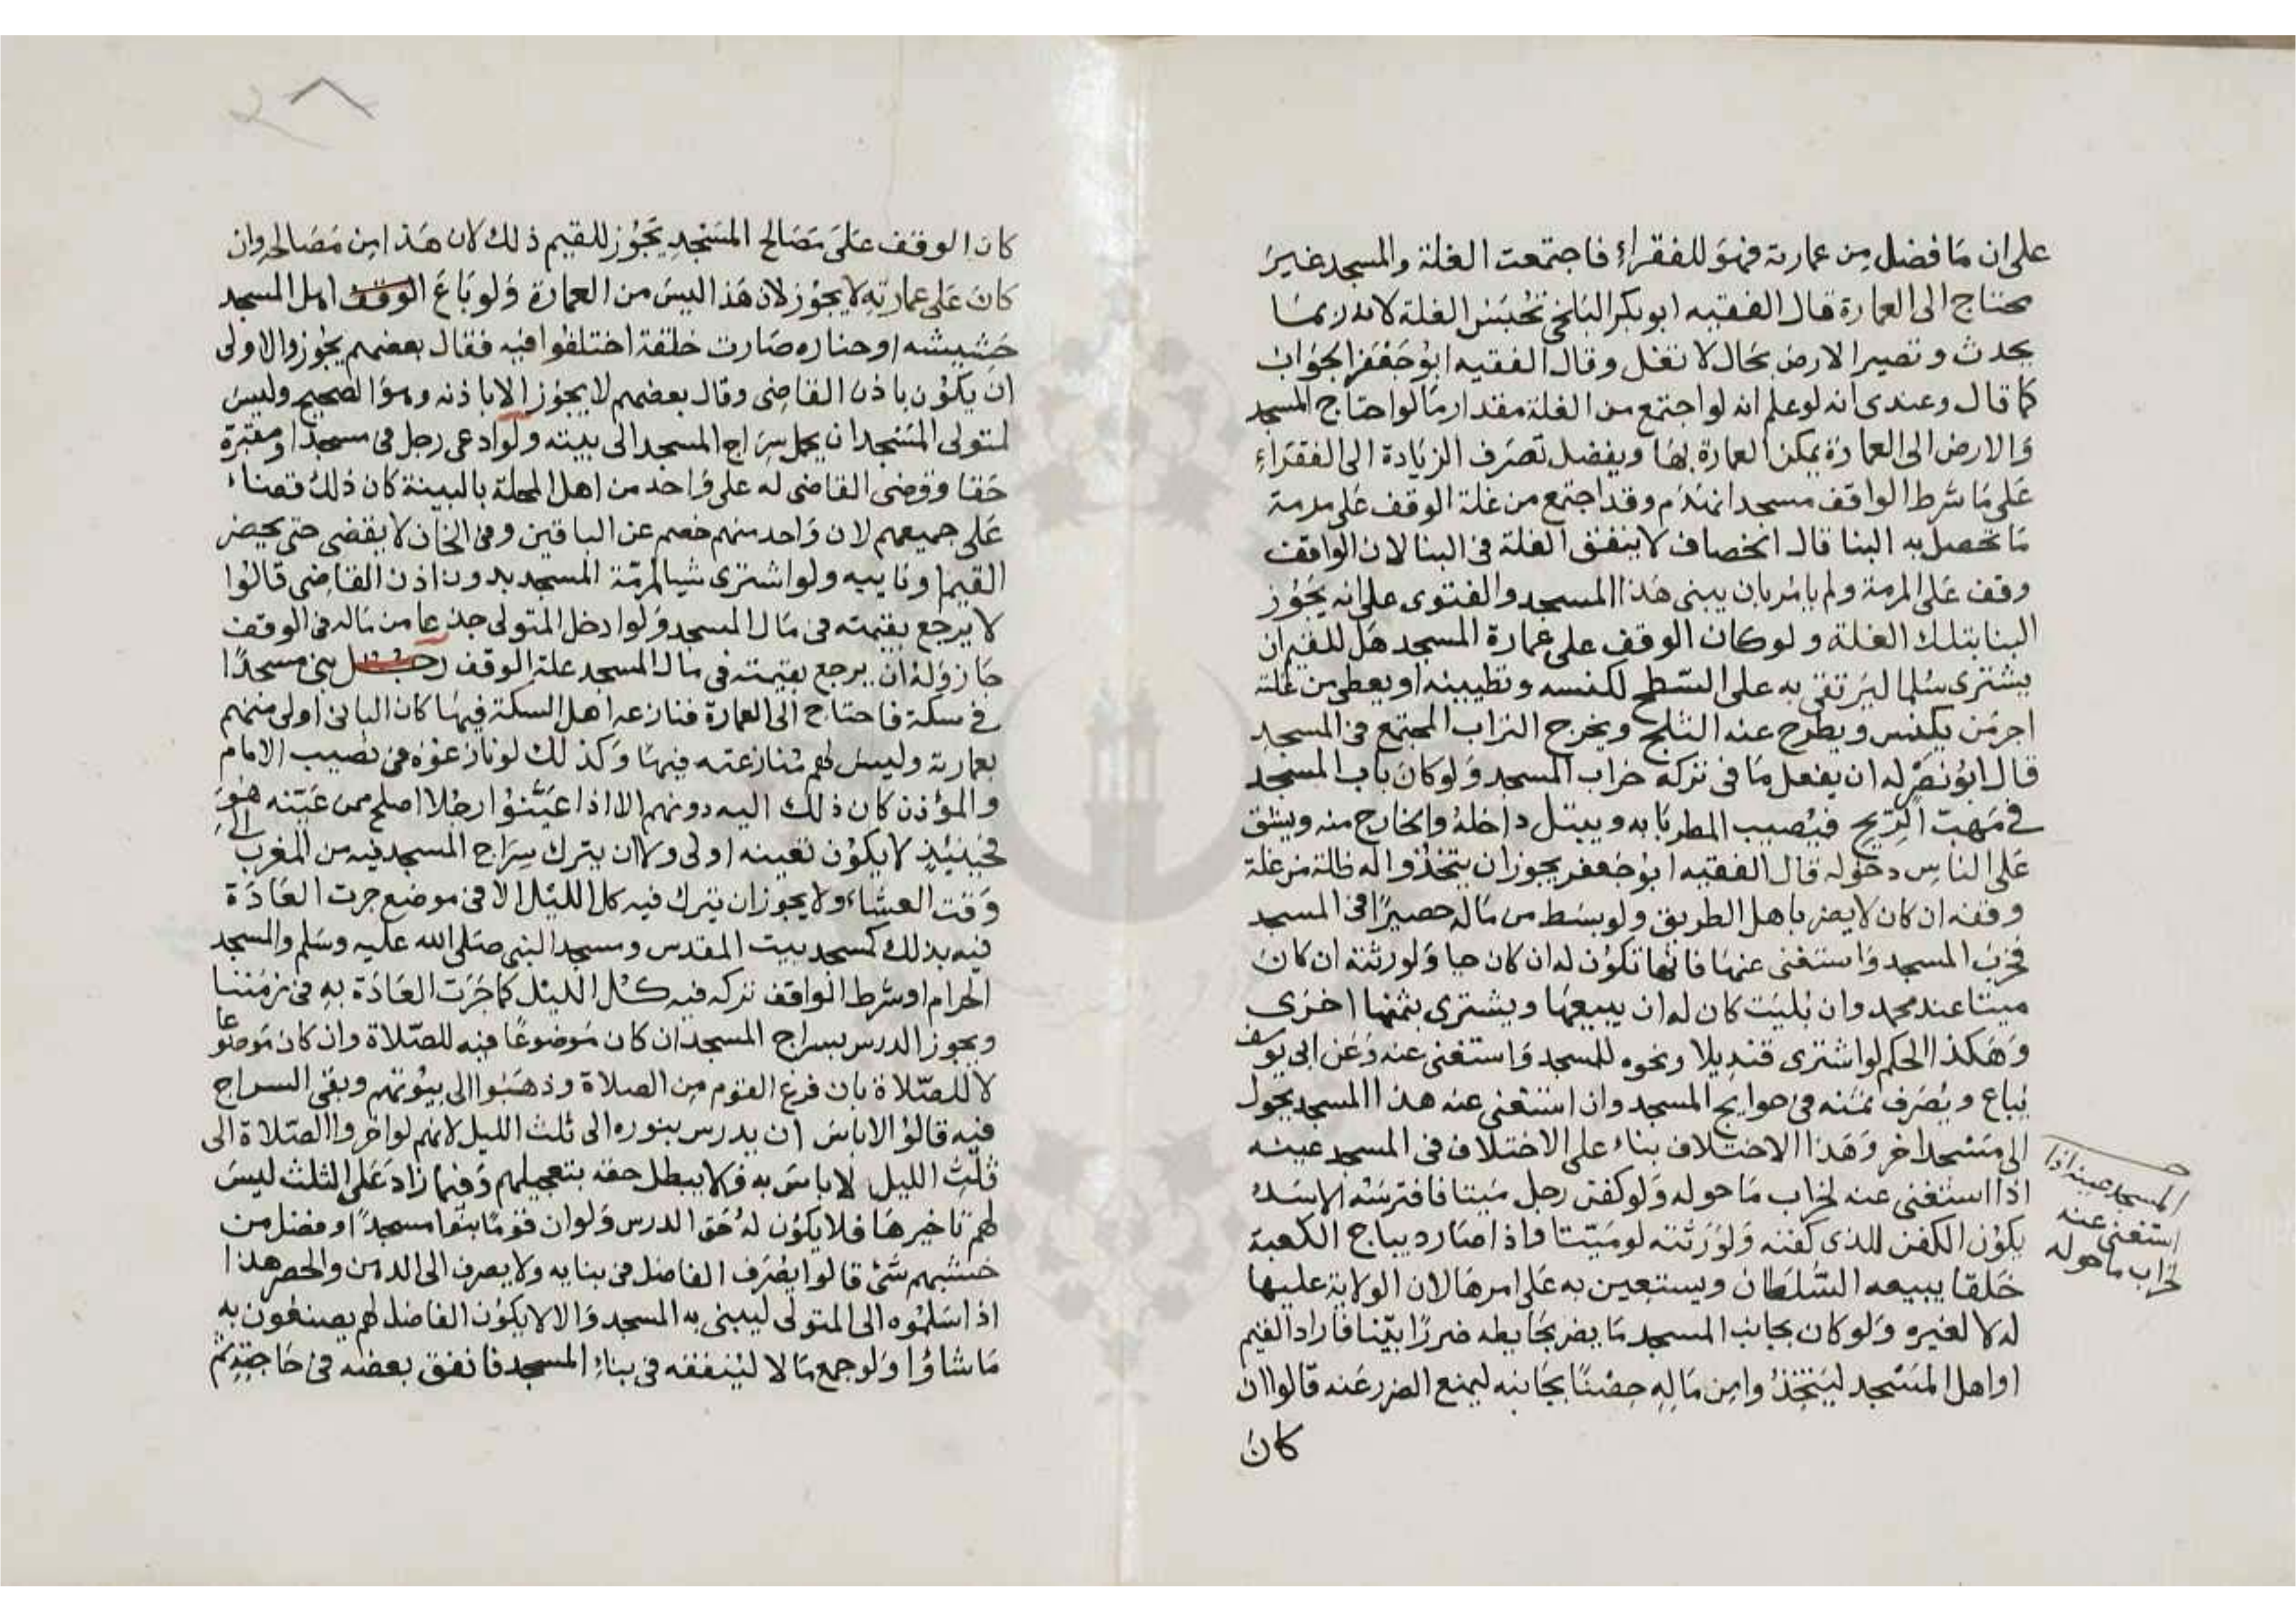 على ان مَا فضل مِن عمارته فهوَ للفقراءِ فاجتمعت الغلة والمسجد غيرَ
محتاج الى العمارة قال الفقيه ابو بكر البلخى تحُبَسُ الغلة لانه ربمَا
يحدث وتصير الارض بحَال لا تغل وقال الفقيه ابوُجَعْفَر الجوَاب
كما قال وعندى انه لو علم انه لو اجتمع من الغلة مقدار مَا لو احتاج المسجد
وَالارض الى العمارَة يمكن العمارة بهَا ويفضل تصَرف الزيَادة الى الفقرَاءِ
عَلى مَا شرط الواقف مسجد انهدَم وقد اجتمع من غلة الوقف على مرمة
مَا تحصل به البنا قال الخصاف لا ينفق الغلة فى البنا لان الواقف
وقف عَلى المرمة ولم يامُر بان يبنى هَذا المسجد والفتوى على انه يجُوز
البنا بتلك الغلة ولو كان الوقف على عمارة المسجد هَل للقيم ان
يشترى سُلما ليَرتقى به على السَّطح لكنسه وتطيينه او يعطى من غلته
اجر مَن يكنس ويطرح عنه الثلج ويخرج التراب المجتمع فى المسجدِ
قال ابوُ نصَرْ له ان يفعل مَا فى تركه خراب المسجد وَلو كانَ باب المسجد
فى مَهبّ الرّيح فيُصيب المطر بَابه ويبتل داخلهُ والخارج منه ويشق
عَلى الناسِ دخوله قال الفقيه ابوُ جَعفر يجوز ان يتخذوا له ظلة من غلة
وقفه ان كان لا يضر باهل الطريق ولو بسَط من مَاله حصيرًا فى المسجد
فخربَ المسجد وَاستغنى عنهَا فانها تكوُن له ان كان حيا وَلورثته ان كانَ
ميتا عند محمد وان بَليَت كان له ان يبيعهَا ويشترى بثمنها اخرَى
وَهَكذا الحكم لو اشترى قنديلا ونحوه للمسجد وَاستغنى عنه وَعَن ابى يوسف
يُباع ويُصَرف ثمَنه فى حوايج المسجد وان استغنى عنه هذا المسجد يحَول
الى مَسْجد اخر وَهَذا الاختلاف بناء على الاختلاف فى المسجد عينه
اذا استغنى عنه لخرَاب مَا حوله وَلو كفن رجل مَيتا فافترسَهُ الاسَد
يكوُن الكفن للذى كفنه وَلوَرَثته لو مَيّتا واذا صَار ديباج الكعبة
خَلقا يبيعه السُّلطان ويستعين به عَلى امرهَا لان الولاية عليها
له لا لغيره وَلو كان بجَانب المسجد مَا يضر بحَايطه ضررًا بيّنا فاراد القيم
او اهل المسَجد ليَتخِذُوا مِن مَالِهِ حِصْنًا بجَانبه ليمنع الضرر عَنه قالوا ان
كانَ
المسجد عينه اذا
استغنى عنه
لخراب ما حوله
كان الوقف عَلىَ مَصَالح المَسْجدِ يجَوُز للقيم ذلك لان هَذا مِن مَصَالحهِ وان
كانَ عَلى عمارتِهِ لا يجوُز لان هَذا ليسَ من العمارة وَلو بَاعَ الوقف اهل المسجد
حَشيشه او جنازه صَارت خلقة اختلفوُا فيه فقال بعضهم يجُوز والاولى
انَ يكوُن باذن القاضِى وقال بعضهم لا يجوُز الا باذنه وهوَ الصحيح وليسَ
لمتولى المسَجد ان يحمل سِرَاج المسجد الى بيته ولو ادعى رجل فى مسجد او مقبرة
حَقا وقضى القاضى له على وَاحد من اهل المحلة بالبينة كان ذلكَ قضاءً
عَلى جميعهم لان وَاحد منهم خصم عن الباقين وفى الخان لا يقضى حتى يحضر
القيم او نايبه ولو اشترى شيا لمرمّة المسجد بدون اذن القاضِى قالوُا
لا يرجع بقيمته فى مَال المسجد وَلو ادخل المتولى جذعا من مَاله فى الوقف
جَاز وَلهُ ان يرجع بقيمته فى مال المسجد غلة الوقف رجل بنى مسجدًا
فى سكة فاحتاج الى العمارة فنازعه اهل السكة فيهَا كان البانى اولى منهم
بعمارته وليسَ لهم مُنازعته فيهَا وَكذلك لو نازعوُه فى نصيب الامام
والمؤذن كان ذلك اليه دونهم الا اذا عَيَّنوُا رجُلا اصلح ممن عَيّنه هُوَ
فحَينئِذٍ لا يكوُن تعيينه اولى ولا ان يترك سِرَاج المسجد فيه من المغرب الى
وَقت العشاءِ ولا يجوز ان يترك فيه كل الليْل الا فى موضع جرت العَادَة
فيه بذلك كمسجد بيت المقدس ومسجد النبى صَلى الله عليه وسَلم والمسجد
الحرام او شرط الواقف تركه فيه كل الليْل كما جَرَت العَادَة به فى زمَننا
ويجوز الدرس بسراج المسجد ان كان مَوضوعًا فيه للصّلاة وان كان مَوضوعا
لا للصّلاة بان فرغ القوم مِن الصلاة وذهَبوا الى بيُوتهم وبقى السراج
فيه قالوُا لا باسَ ان يدرس بنوره الى ثلث الليل لانهم لو اخروا الصّلاة الى
ثلث الليل لا باسَ به وَلا يبطل حقه بتعجيلهم وَفيما زادَ عَلى الثلث ليسَ
لهم تاخيرهَا فلا يكوُن لهُ حَق الدرس وَلو ان قومًا بنوا مسجدًا وفضل من
خشبهم شَئ قالوا يصُرَف الفاضل فى بنايه ولا يصرف الى الدهن والحصر هذا
اذا سَلمُوه الى المتولى ليبنى به المسجد وَالا لا يكوُن الفاضل لهم يصنعون به
مَا شاؤا وَلو جمع مَالا ليُنفقه فى بناءِ المسجد فانفق بعضه فى حَاجتِهِ ثم